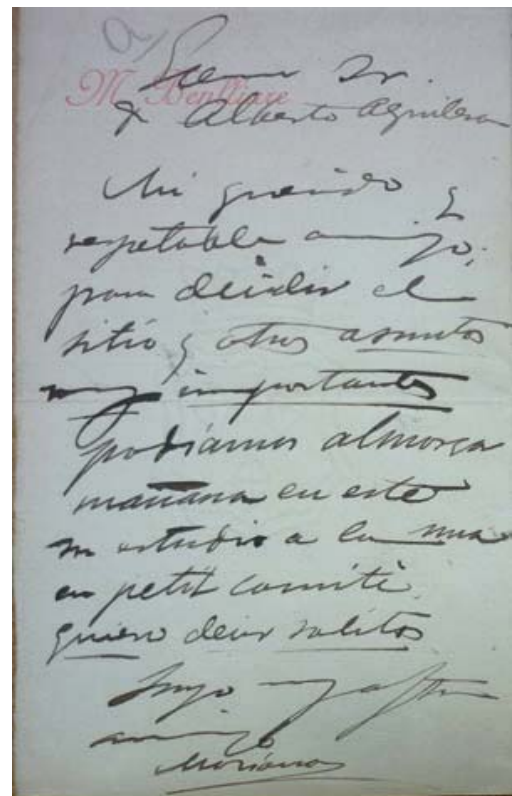 M. Benlliure
Excmo Sr.
D Alberto Aguilera
Mi querido y
respetable amigo;
para decidir el
sitio y otros asuntos
muy importantes
podíamos almorzar
mañana en este
su estudio a la una
en petit comité,
quiero decir solitos
Suyo
amigo
Mariano